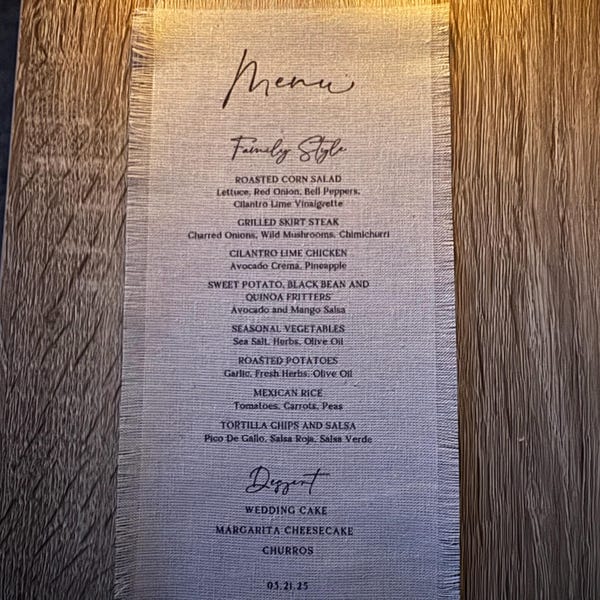 Menu
Family Style
ROASTED CORN SALAD
Lettuce, Red Onion, Bell Peppers,
Cilantro Lime Vinaigrette
GRILLED SKIRT STEAK
Charred Onions, Wild Mushrooms, Chimichurri
CILANTRO LIME CHICKEN
Avocado Crema, Pineapple
SWEET POTATO, BLACK BEAN AND
QUINOA FRITTERS
Avocado and Mango Salsa
SEASONAL VEGETABLES
Sea Salt, Herbs, Olive Oil
ROASTED POTATOES
Garlic, Fresh Herbs, Olive Oil
MEXICAN RICE
Tomatoes, Carrots, Peas
TORTILLA CHIPS AND SALSA
Pico De Gallo, Salsa Roja, Salsa Verde
Dessert
WEDDING CAKE
MARGARITA CHEESECAKE
CHURROS
03.21.25